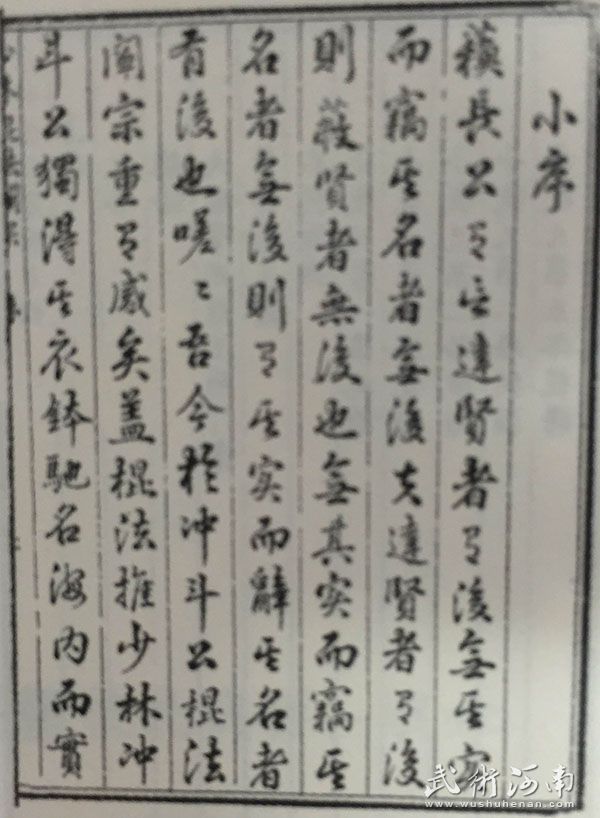 小序
蘇長公有言達賢者有後無其实
而竊其名者無後夫達賢者有後
則蔽賢者無後也無其实而竊其
名者無後則有其实而辭其名者
有後也嗟〻吾今於冲斗公棍法
闡宗重有感矣盖棍法推少林冲
斗公獨得其衣鉢馳名海内而實
武術河南
www.wushuhenan.com